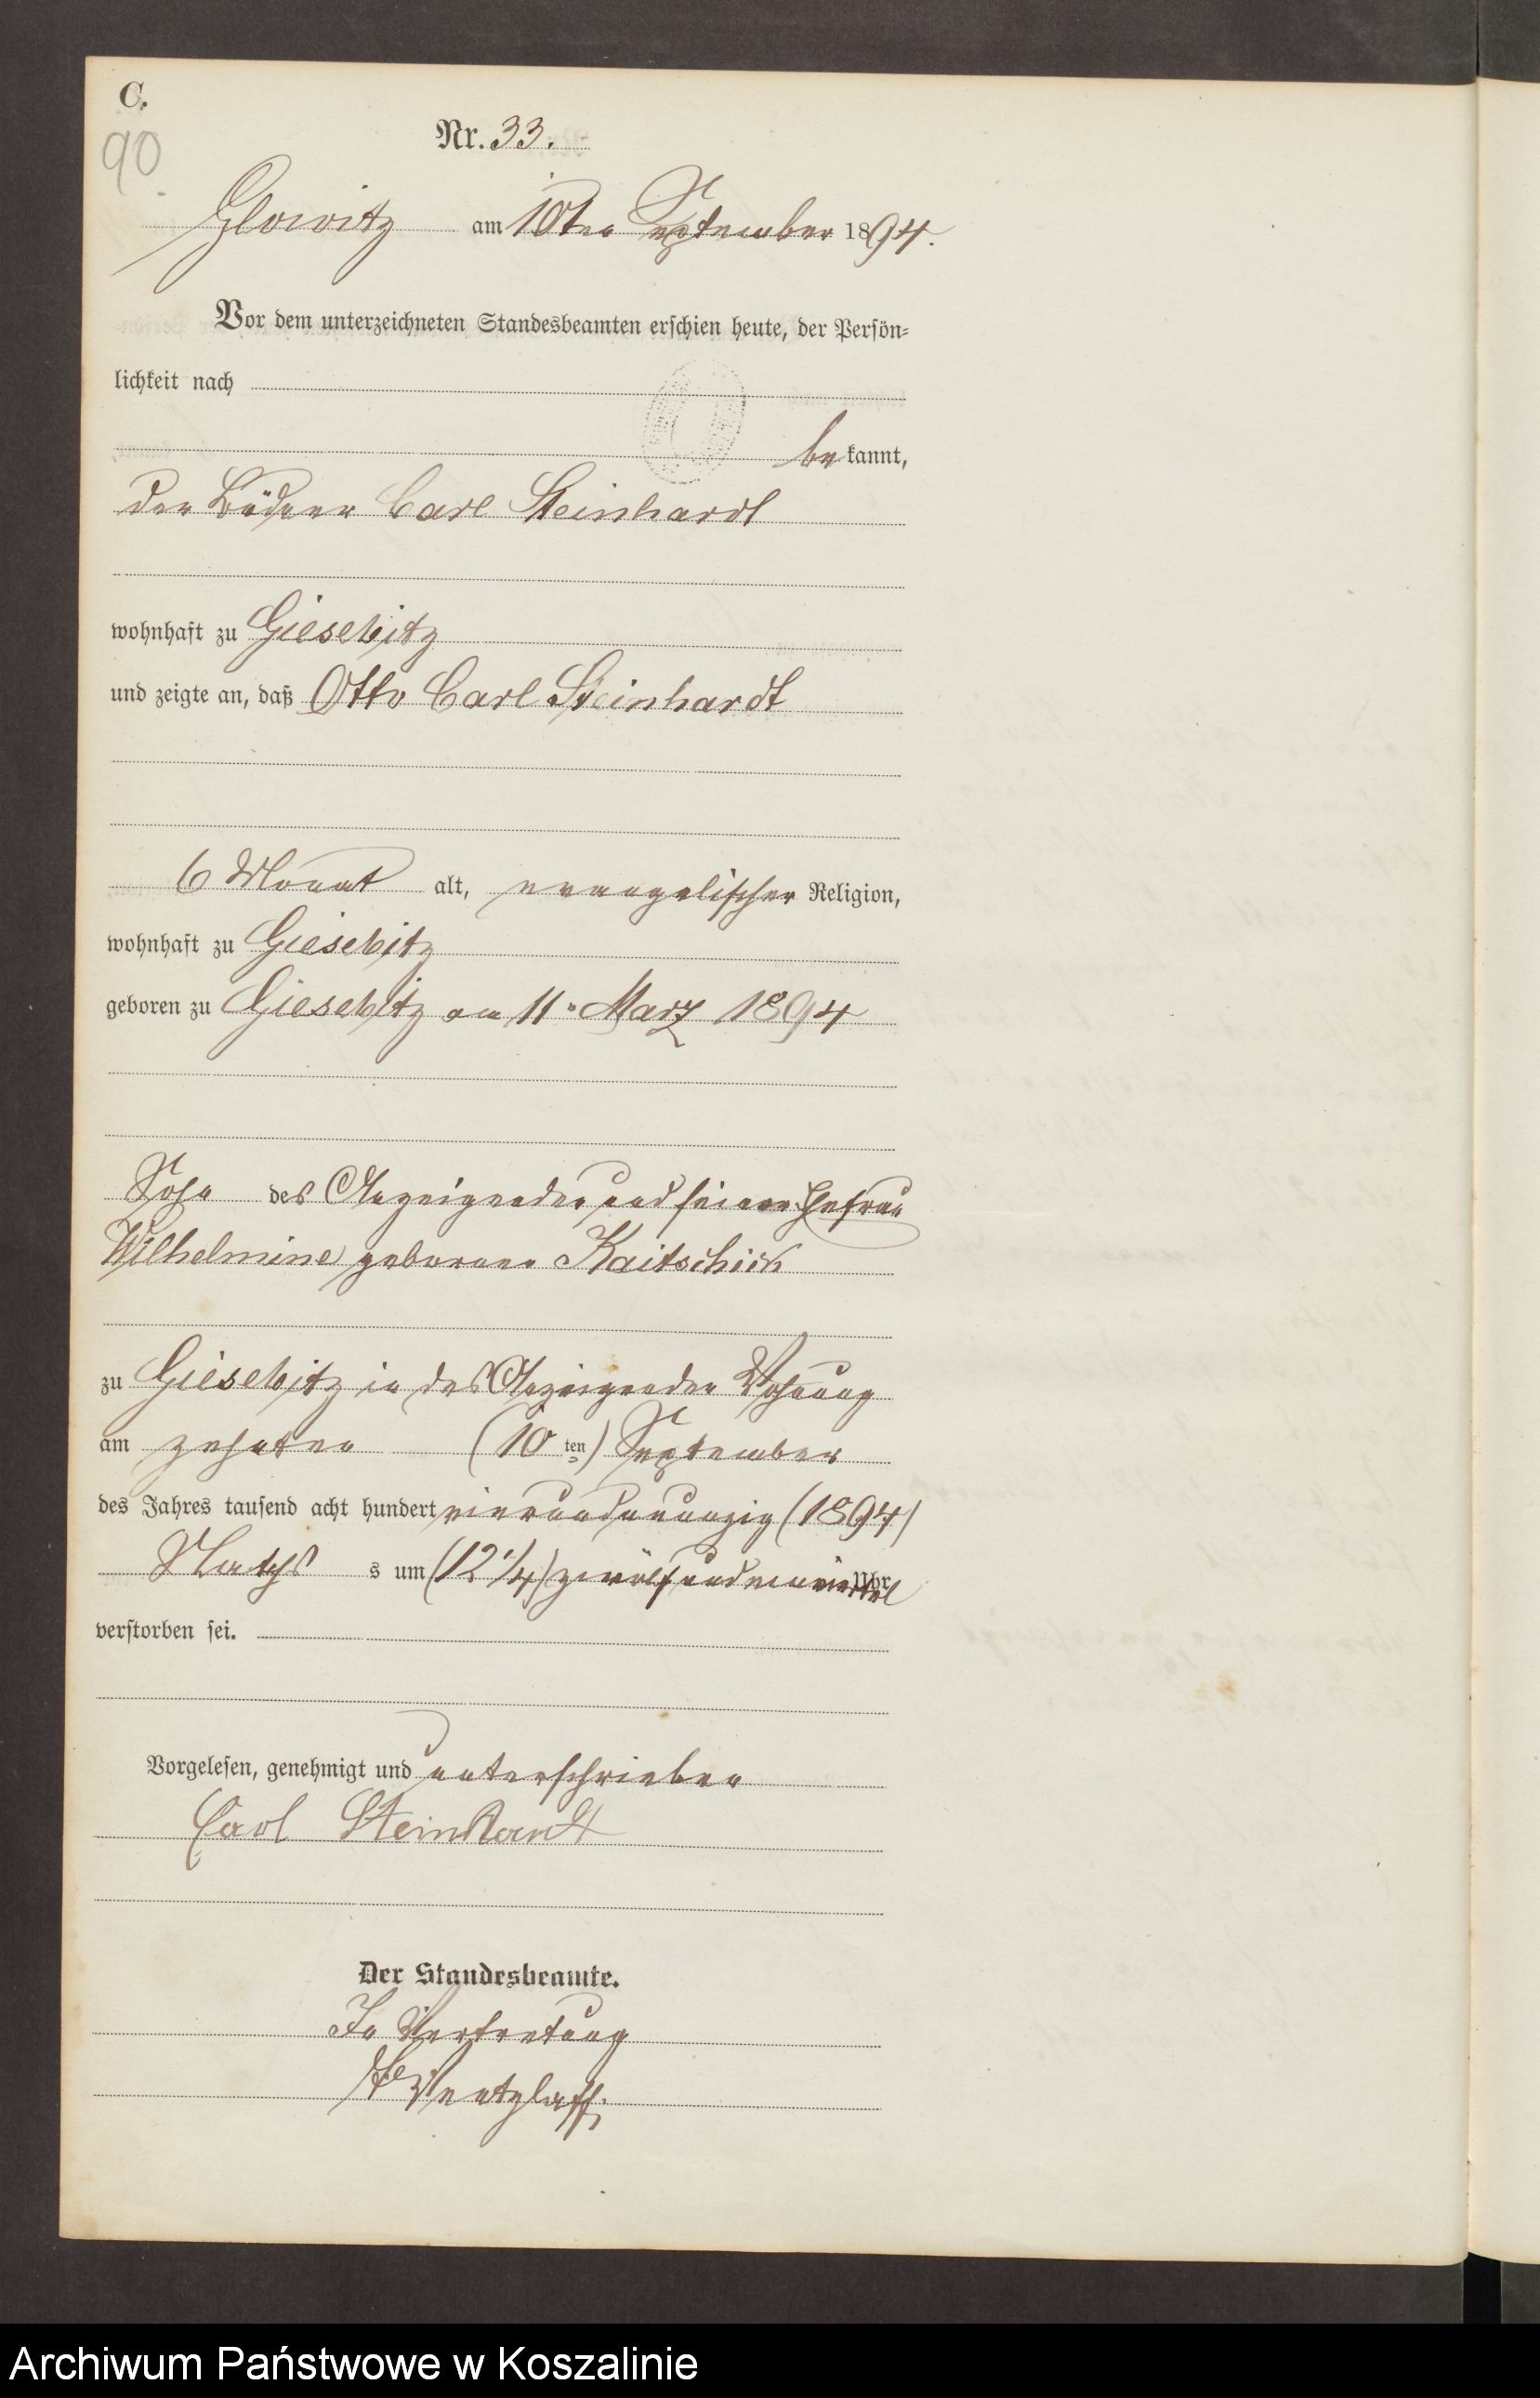 C.
90
Nr. 33.
Glowitz am 10ten September 1894.
Vor dem unterzeichneten Standesbeamten erschien heute, der Persön-
lichkeit nach
bekannt,
der Büdner Carl Steinhardt
wohnhaft zu Giesebitz
und zeigte an, daß Otto Carl Steinhardt
6 Monat alt, evangelischer Religion,
wohnhaft zu Giesebitz
geboren zu Giesebitz am 11. März 1894
Sohn des Anzeigenden und seiner Ehefrau
Wilhelmine geborenen Kaitschick
zu Giesebitz in des Anzeigenden Wohnung
am zehnten (10ten) September
des Jahres tausend acht hundert vierundneunzig (1894)
Nachts um (12 1/4) zwölf und ein viertel Uhr
verstorben sei.
Vorgelesen, genehmigt und unterschrieben
Carl Steinhardt
Der Standesbeamte.
In Vertretung
Wentzlaff.
Archiwum Państwowe w Koszalinie